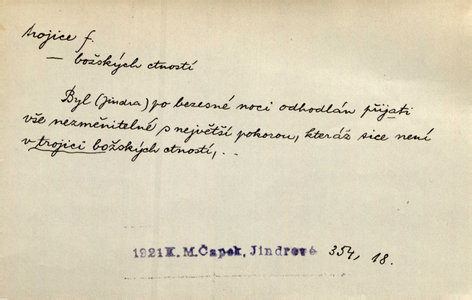 trojice f.
— božských ctností
Byl (Jindra) po bezesné noci odhodlán přijati
vše nezměnitelné s největší pokorou, kteráž sice není
v trojici božských ctností, ..
1921 K. M. Čapek, Jindrové 354, 18.